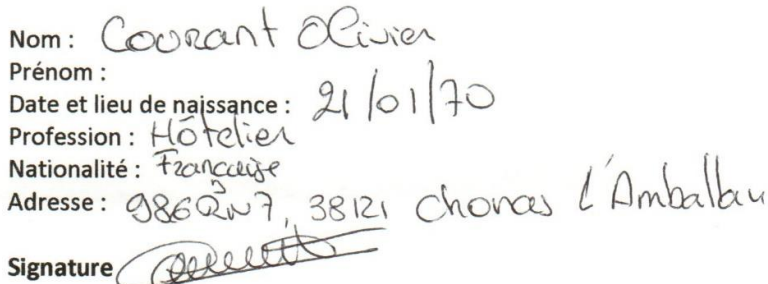 Nom : Courant Olivier
Prénom :
Date et lieu de naissance : 21/01/70
Profession : Hôtelier
Nationalité : Française
Adresse : 986 RN7, 38121 chonas l'Amballan
Signature